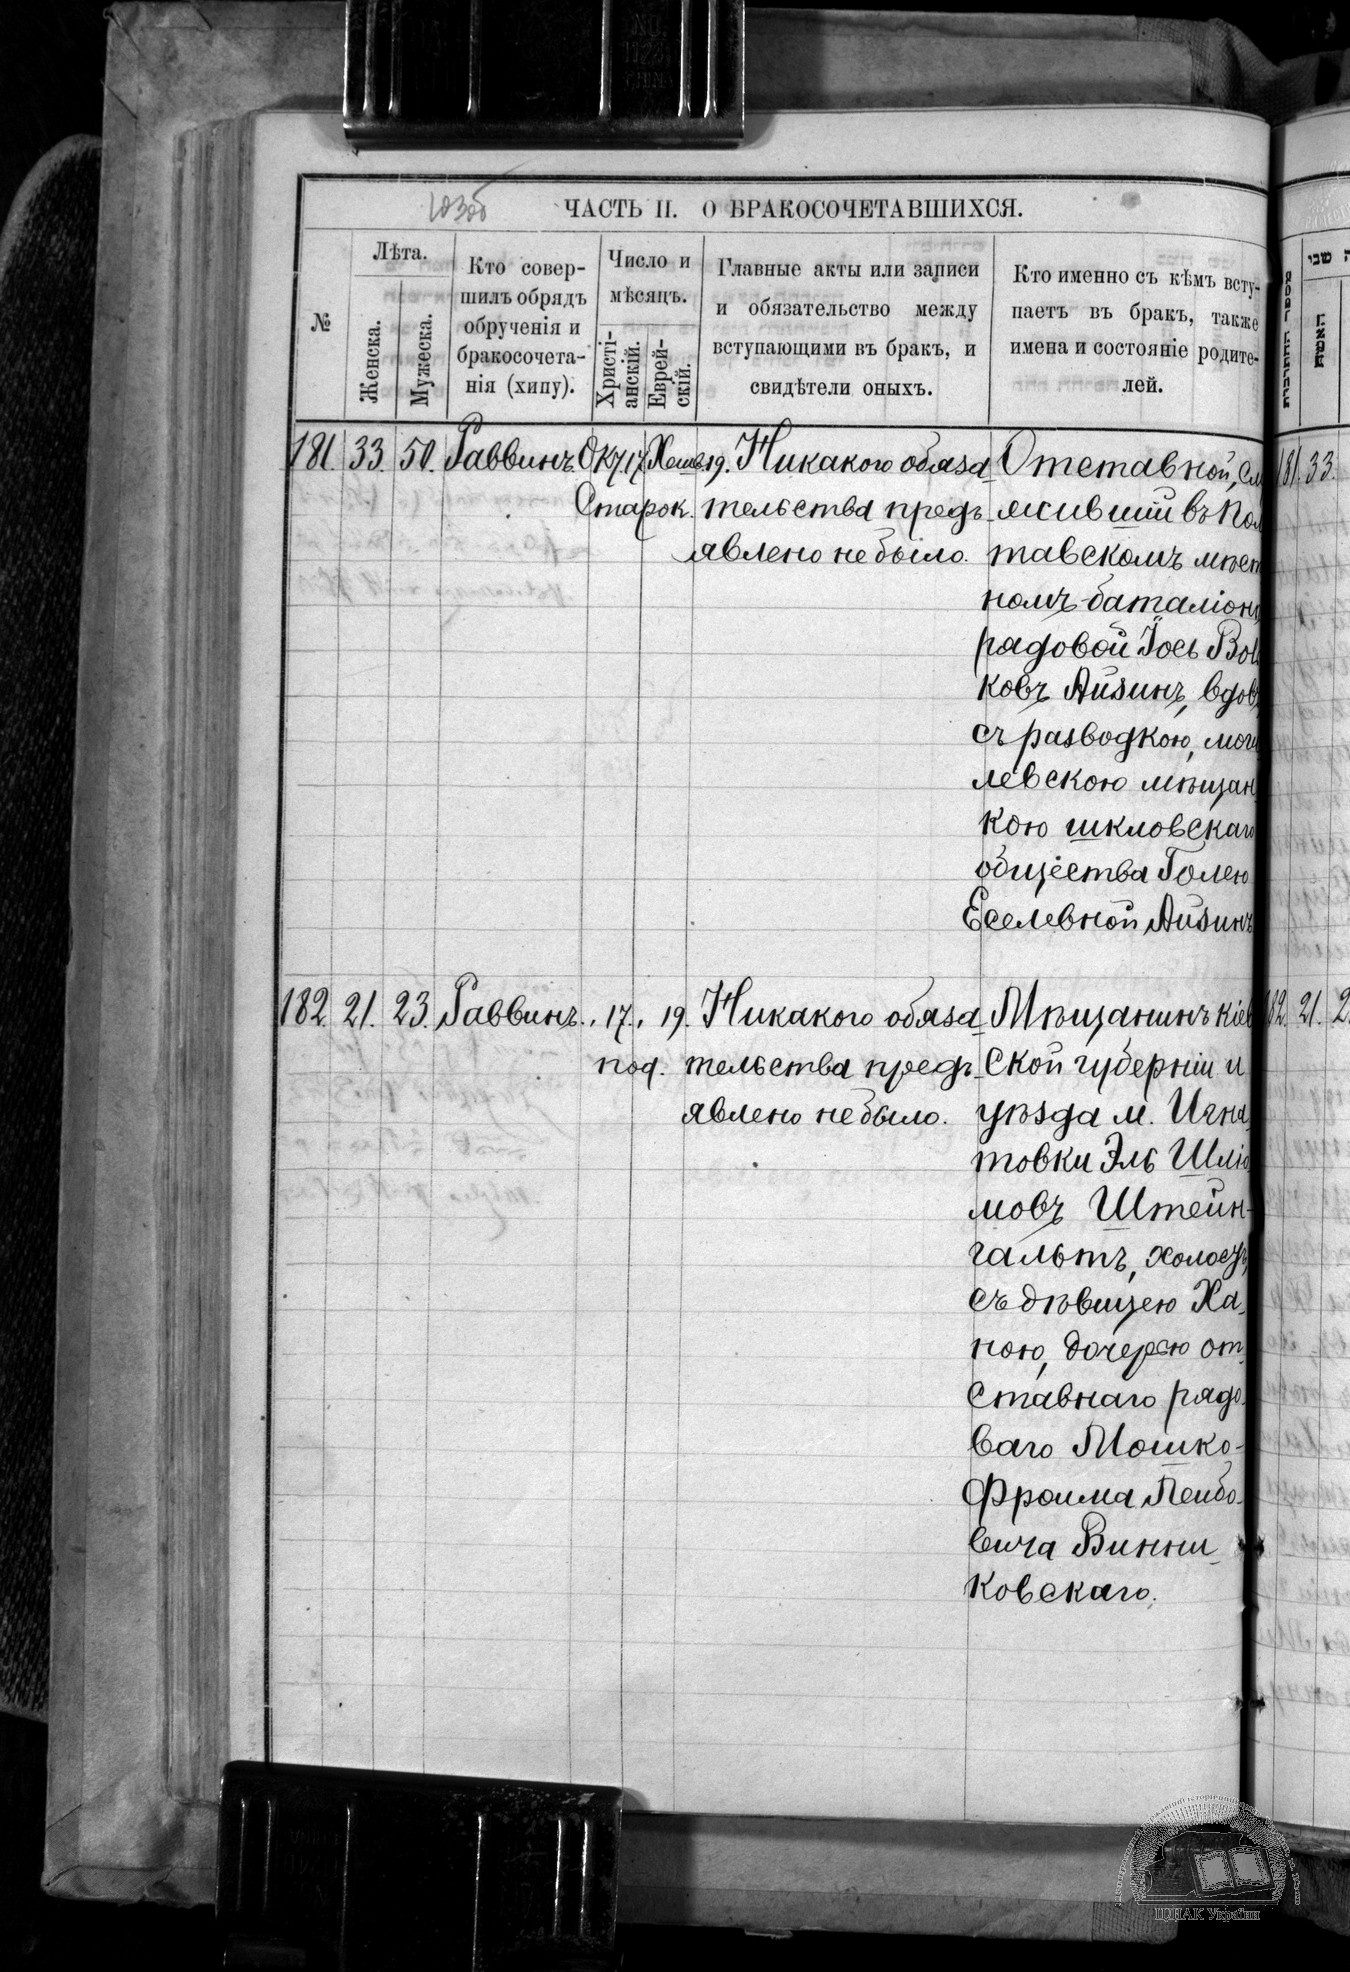 ЧАСТЬ II. О БРАКОСОЧЕТАВШИХСЯ.
№
Лѣта.
Женска.
Мужеска.
Кто совер-
шилъ обрядъ
обрученія и
бракосочета-
нія (хипу).
Число и
мѣсяцъ.
Христі-
анскій.
Еврей-
скій.
Главные акты или записи
и обязательство между
вступающими въ бракъ, и
свидѣтели оныхъ.
Кто именно съ кѣмъ всту-
паетъ въ бракъ, также
имена и состояніе родите-
лей.
181. 33. 50. Раввинъ. Окт 17 Хешв. 19.
Старок.
Никакого обяза
тельства предъ
явлено не было.
Отставной, сл
жившій въ Пол
тавскомъ мѣст
номъ баталіонѣ
рядовой Іось Вол
ковъ Айзинъ, вдов
съ разводкою, моги
левскою мѣщан
кою шкловскаго
общества Голею
Еселевной Айзинъ
182. 21. 23. Раввинъ. „ 17. „ 19.
под.
Никакого обяза
тельства предъ
явлено не было.
Мѣщанинъ Кіев
ской губерніи и
уѣзда м. Игна
товки Эль Шлío
мовъ Штейн-
гальтъ, холост,
съ дѣвицею Ха
ною, дочерью от
ставнаго рядо
ваго Мошко-
Фроима Лейбо
вича Винни
ковскаго.
מספר החתונות
שני
האשה
181. 33.
182. 21. 2
ЦДІАК України